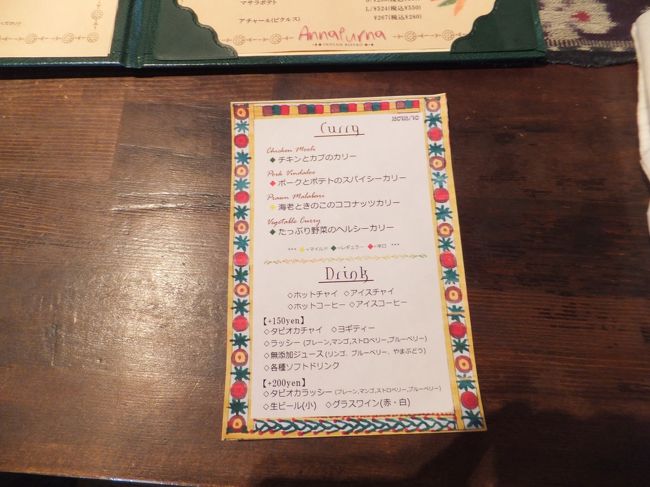 マサラポテト
L/¥524(税込¥550)
アチャール(ピクルス)
¥267(税込¥280)
AnnaPurna
INDIAN BISTRO
Curry
Chicken Mooli
◆チキンとカブのカリー
Pork Vindaloo
◆ポークとポテトのスパイシーカリー
Prawn Malabari
◆海老ときのこのココナッツカリー
Vegetable Curry
◆たっぷり野菜のヘルシーカリー
*** ◆=マイルド ◆=レギュラー ◆=辛口 ***
Drink
◇ホットチャイ ◇アイスチャイ
◇ホットコーヒー ◇アイスコーヒー
【+150yen】
◇タピオカチャイ ◇ヨギティー
◇ラッシー (プレーン,マンゴ,ストロベリー,ブルーベリー)
◇無添加ジュース (リンゴ、ブルーベリー、やまぶどう)
◇各種ソフトドリンク
【+200yen】
◇タピオカラッシー (プレーン,マンゴ,ストロベリー,ブルーベリー)
◇生ビール(小) ◇グラスワイン(赤・白)